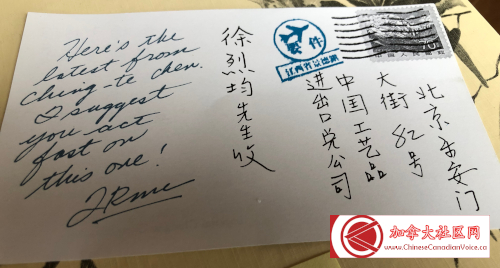 Here's the
latest from
Ching-te chen.
I suggest
you act
fast on
this one!
北京东安门
大街82号
中国工艺品
进出口总公司
徐烈均先生收
加拿大社区网
www.ChineseCanadianVoice.ca